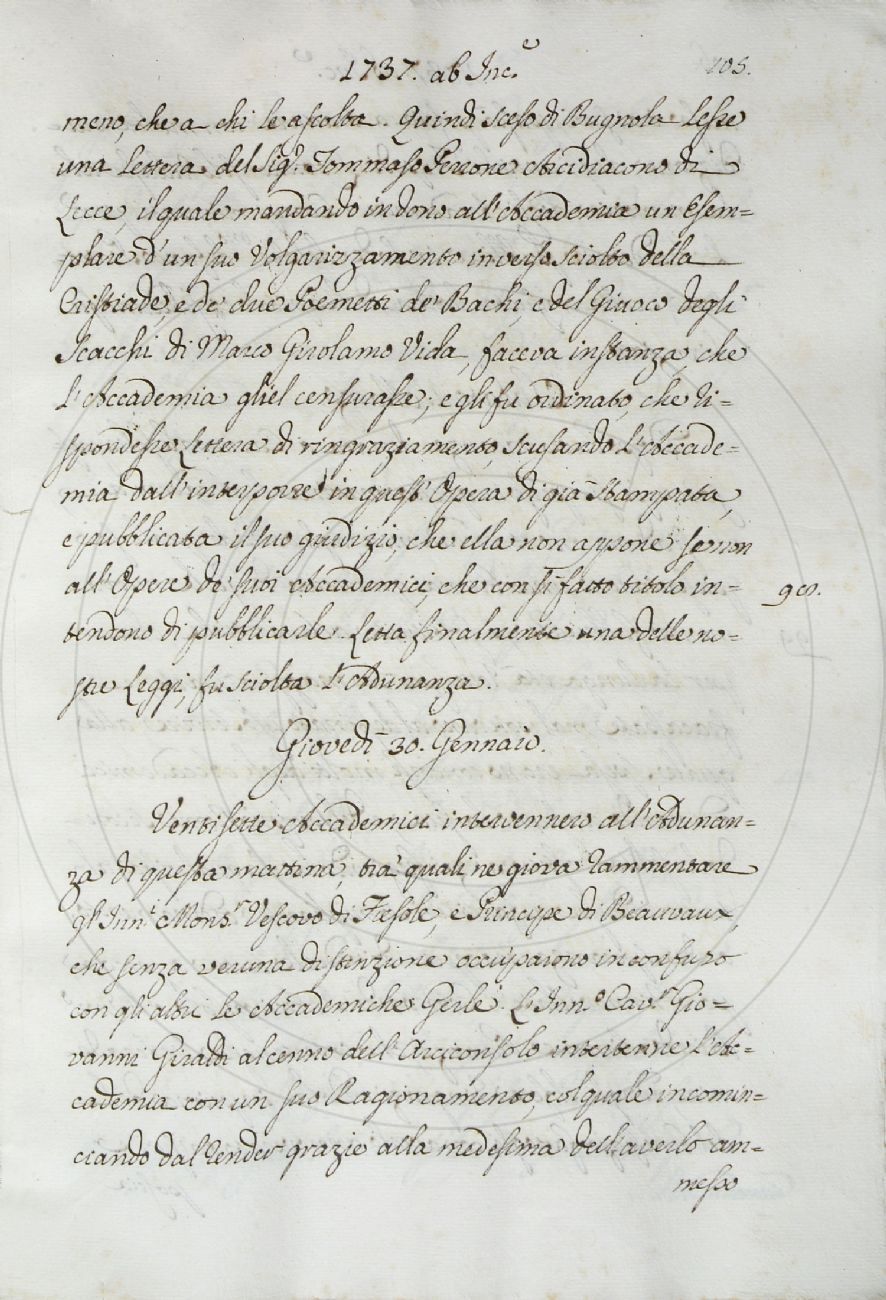 1737. ab Inc.e 105.
meno, che a chi le ascolta. Quindi sceso di Bugnola lesse
una lettera del Sig.r Tommaso Perrone Arcidiacono di
Lecce, il quale mandando in dono all'Accademia un Esem=
plare d'un suo Volgarizzamento in verso sciolto della
Cristiade, e de' due Poemetti de' Bachi, e del Giuoco degli
Scacchi di Marco Girolamo Vida, faceva instanza, che
l'Accademia gliel censurasse; e gli fu ordinato, che ri=
spondesse lettera di ringraziamento, scusando l'Accade=
mia dall'interporre in quest'Opera di già stampata,
e pubblicata il suo giudizio, che ella non appone se non
all'Opere de' suoi Accademici, che con sì fatto titolo in=
tendono di pubblicarle. Letta finalmente una delle no=
stre Leggi, fu sciolta l'Adunanza.
Giovedì 30. Gennaio.
Ventisette Accademici intervennero all'Adunan=
za di questa mattina, tra' quali ne giova rammentare
gl'Inn.i e Mons.r Vescovo di Fiesole, e Principe di Beauvaux,
che senza veruna distinzione occuparono in confuso
con gli altri le Accademiche Gerle. L'Inn.o Cav.r Gio=
vanni Giraldi al cenno dell'Arciconsolo intertenne l'Ac=
cademia con un suo Ragionamento, col quale incomin=
ciando dal render grazie alla medesima dell'averlo am=
messo